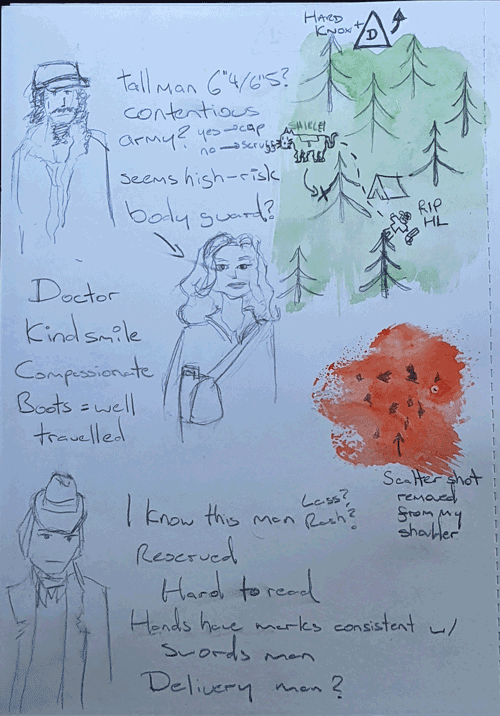 HARD
KNOX
D
tall man 6"4/6"5?
contentious
army? yes → cap
no → scruggs
SHIRLEY
seems high-risk
body guard?
RIP
HL
Doctor
Kind smile
Compassionate
Boots = well
travelled
Scatter shot
removed
from my
shoulder
I know this man Lass?
Rash?
Reserved
Hard to read
Hands have marks consistent w/
Swords man
Delivery man?